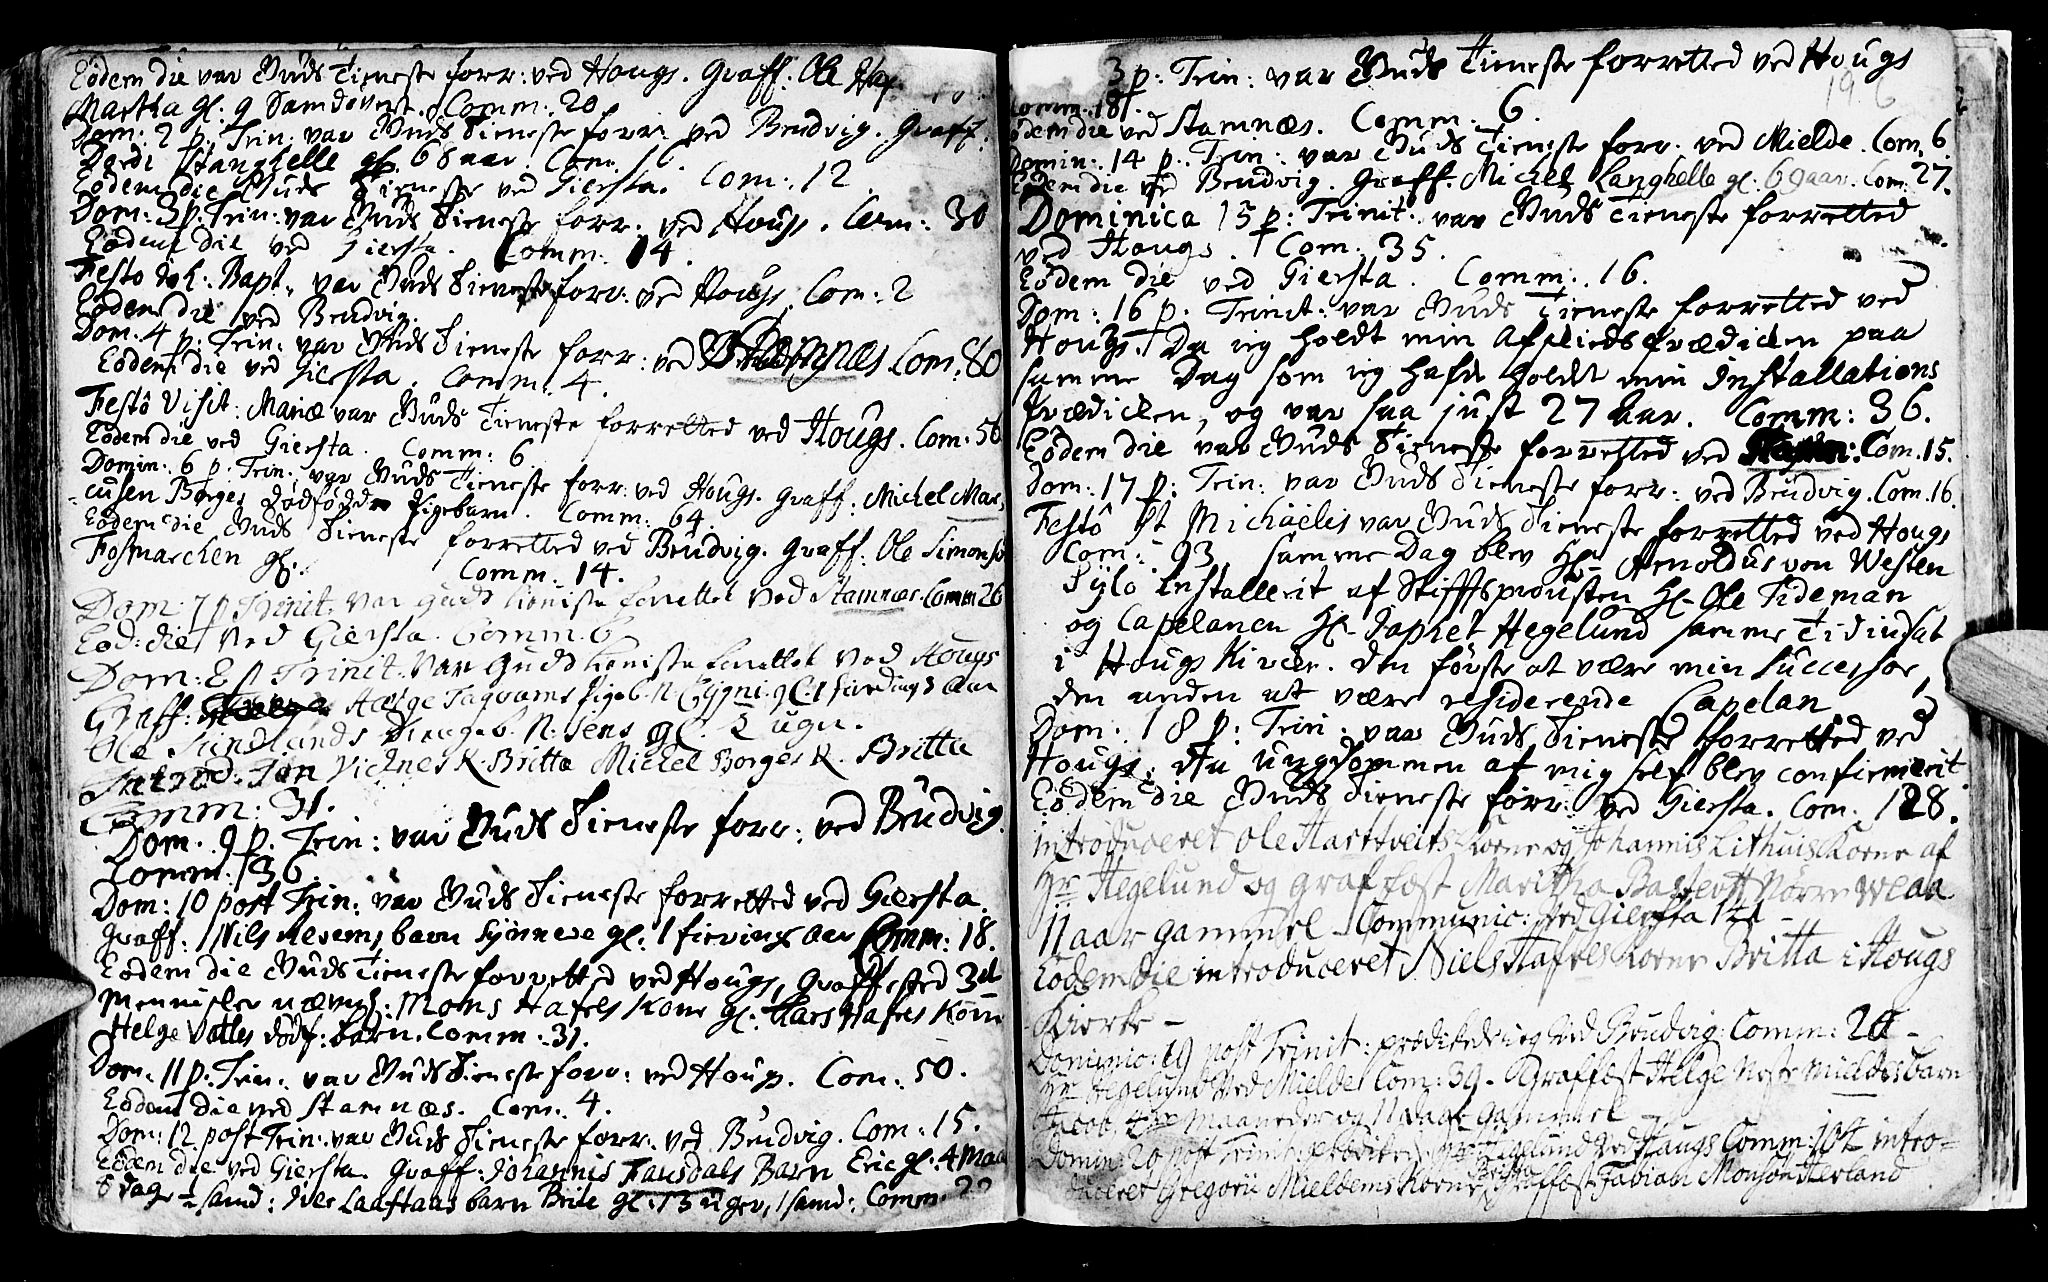 Eodem die var Guds Tieneste forr: ved Hougs. Graff: Ole
Martha gl: 9 Samdøverst. Comm: 20
Dom: 2 p. Trin: var Guds Tieneste forr: ved Brudvig. Graff:
Dordi Stanghelle gl. 68 aar. Com: 16.
Eodem die Guds Tieneste ved Giersta. Com: 12.
Dom: 3 p. Trin: var Guds Tieneste forr: ved Hougs. Com: 30
Eodem die ved Giersta. Comm: 14.
Festo Joh: Bapt: var Guds Tieneste forr: ved Hougs. Com: 2
Eodem die ved Brudvig.
Dom: 4 p. Trin: var Guds Tieneste forr: ved Stamnæs Com: 80
Eodem die ved Giersta. Comm: 4.
Festô Visit: Mariæ var Guds Tieneste forretted ved Hougs. Com: 56
Eodem die ved Giersta. Comm: 6
Domin: 6 p. Trin: var Guds Tieneste forr: ved Hougs. Graff: Michel Mar-
cusen Borges dødfødde Pigebarn. Comm: 64.
Eodem die Guds Tieneste forretted ved Brudvig. Graff: Ole Simons
Fosmarchen gl: Comm: 14.
Dom: 7 p Trinit. var Guds tieniste forrettet ved Stamnæs. Comm 26
Eod: die ved Giersta. Comm. 6
Dom: 8 p Trinit. var Guds tieniste forrettet ved Hougs
Graff: Helge Tagvams Pigeb. N. gl. 1 fierding 3 aar
Ole Sundlands Drengeb. N: Jens gl. 5 ugu.
Introd: Jan Vichnes K. Britta Michel Borges K. Britta
Comm: 31.
Dom. 9 p. Trin: var Guds Tieneste forr: ved Brudvig.
Comm: 36.
Dom: 10 post Trin: var Guds Tieneste forretted ved Giersta.
Graff: Nils Revems barn Synneve gl: 1 fierinx aar Comm: 18.
Eodem die Guds Tieneste forretted ved Hougs, Graffested 3de
Mennisker nævnl: Mons Hafres Kone gl: Lars Hafres Kone
Helge Vatles dødf: barn. Comm: 31.
Dom: 11 p: Trin: var Guds Tieneste forr: ved Hougs. Com: 50.
Eodem die ved Stamnæs. Com: 4.
Dom: 12 post Trin: var Guds Tieneste forr: ved Brudvig. Com: 15.
Eodem die ved Giersta. Graff: Johannis Fausdals Barn Eric gl: 4 Maa
8 dage - samd: Iver Laastaas barn Brite gl: 13 uger, 1 samd: Comm: 22
3 p: Trin: var Guds Tieneste forretted ved Hougs
196
Comm: 18.
Eodem die ved Stamnæs. Comm: 6.
Domin: 14 p: Trin: var Guds Tieneste forr: ved Mielde. Com. 6.
Eodem die ved Brudvig. Graff: Michel Langhelle gl: 69 aar. Com: 27.
Dominica 15 p: Trinit: var Guds Tieneste forretted
ved Hougs. Com: 35.
Eodem die ved Giersta. Comm: 16.
Dom: 16 p: Trinit: var Guds Tieneste forretted ved
Hougs. Da ieg holdt min Afskeeds Prædicken paa
samme Dag som ieg hafde holdt min Installations
Prædicken, og var saa just 27 Aar. Comm: 36.
Eodem die var Guds Tieneste forretted ved Com. 15.
Dom: 17 p: Trin: var Guds Tieneste forr: ved Brudvig. Com. 16
Festô St Michaelis var Guds Tieneste forretted ved Hougs
Com: 93 samme Dag blev Hr Arnoldus von Westen
Sylo installerit af Stifftsprousten Hr Ole Tideman
og Capelanen Hr Japhet Hegelund samme Tid indsat
i Hougs Kircke. den første at være min Successor,
den anden at være residerende Capelan
Dom: 18 p: Trin: var Guds Tieneste forretted ved
Hougs. da Ungdommen af mig self blev confirmerit
Eodem die Guds Tieneste forr: ved Giersta. Com: 128.
introduceret Ole Harttveits Kone og Johannis Lithuis Kone af
Hr Hegelund og graffæst Maritha
11 aar gammel - Communic: ved Giersta 121 -
Eodem die introduceret Niels Hafres Kone Britta i Hougs
Kierke -
Dominic: 19 post Trinit: prædikede ieg ved Brudvig: Comm: 20 -
Hr Hegelund ved Mielde Com: 39 - Graffæst Helge Mieldes barn
Jacob 4re Maaneder og gammel -
Domin: 20 post Trinit: prædikede Hr Hegelund ved Haugs Comm: 104 intro-
duceret Gregorii Mieldems Kone Britta, Graffæst Fabian Monsøn Herland